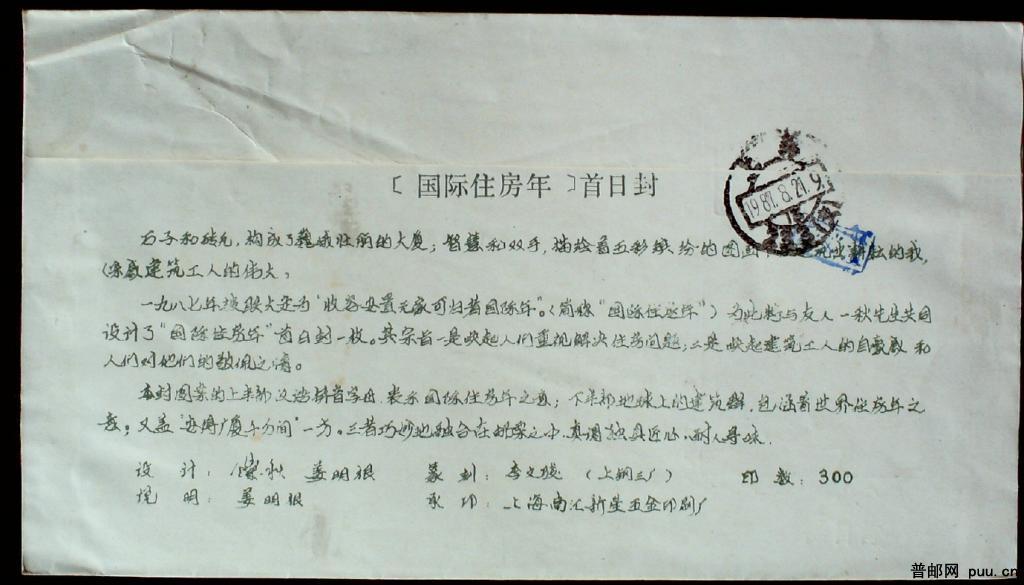 〔 国际住房年 〕首日封
1987.8.21.9
石子和砖瓦，构成了巍峨壮丽的大厦；智慧和双手，描绘着五彩缤纷的图画 的我，
深感建筑工人的伟大，
一九八七年被联大定为“收容安置无家可归者国际年”。（简称“国际住房年”）为此我与友人一秋先生共同
设计了“国际住房年”首日封一枚。其宗旨一是唤起人们重视解决住房问题；二是唤起建筑工人的自豪感和
人们对他们的敬佩之情。
本封图案的上半部 首字母，表示国际住房年之意；下半部地球上的建筑群，包涵着世界住房年之
意；又盖“安得广厦千万间”一方。三者巧妙地融合在邮票之中，真谓独具匠心，耐人寻味。
设 计： 秋 姜明根 篆 刻：李文骏（上钢三厂） 印 数：300
说 明：姜明根 承 印：上海南汇新星五金印刷厂
普邮网 puu.cn